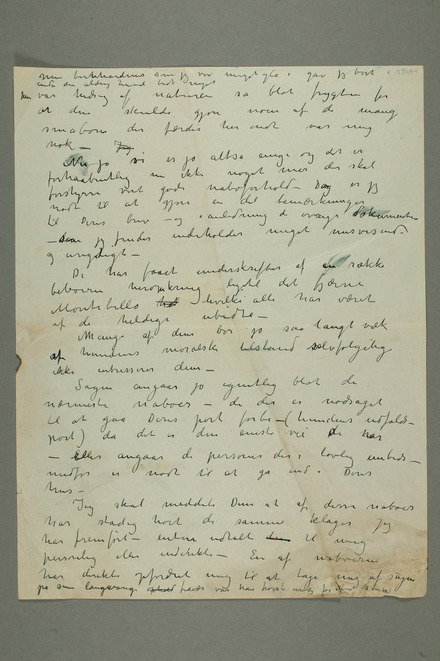 som jeg var meget glad i gav jeg bort
inte den aldrig havde bidt noget
var hidsig af naturen så blot frygten for
at den skulde gjøre noen af de mange
småbørn der færdes her ondt var mig
nok —
Nu jo vi er jo altså enige og det er
forhaabentlig nu ikke noget mer der skal
forstyrre vort gode naboforhold — Dog er jeg
nødt til at gjøre en del bemærkninger
til Deres brev — og i anledning de øvrige dokumenter
— jeg finder indeholder meget misvisende
og urigtigt —
De har faaet underskrifter af en række
beboere heromkring lige til det fjerne
Montebello hvilke alle har været
af de heldige ubidte —
Mange af dem bor jo saa langt væk
at hundens moralske tilstand selvfølgelig
ikke interesserer dem —
Sagen angaar jo egentlig blot de
nærmeste naboer — de der er nødsaget
til at gaa Deres port forbi — (hundens udfalds-
port) da det er den eneste vei de har
— eller angaar de personer der i lovlig embeds-
medfør er nødt til at gå ind i Deres
hus —
Jeg skal meddele Dem at af disse naboer
har stadig hørt de samme klager jeg
har fremført — enten udtalt til mig
personlig eller indirekte — En af naboerne
har direkte opfordret mig til at tage mig af sagen